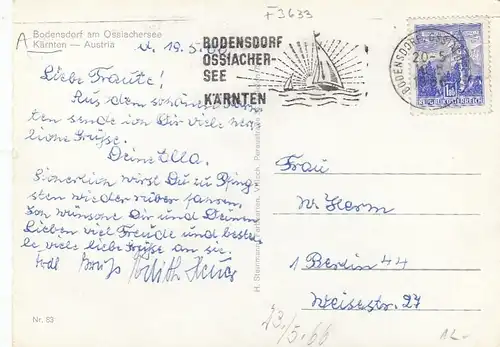 F 3633
A
Bodensdorf am Ossiachersee
Kärnten — Austria
d, 19.5.66
BODENSDORF
OSSIACHER-
SEE
KÄRNTEN
BODENSDORF
20.-5
REPUBLIK ÖSTERREICH
Liebe Traute!
Aus dem schönen
ten sende ich Dir viele herz
liche Grüße.
Deine Illa.
wirst Du zu Pfing
sten wieder rüber fahren.
wünsche Dir und Deinen
Lieben viel Freude und bestel
le viele liebe Grüße an sie.
Edith
Frau
W. Herm
1 Berlin 44
Weisestr. 27
H. Steinmann, Farbkarten, Villach, Peraustraße
Nr. 53
23./5.66
1.-